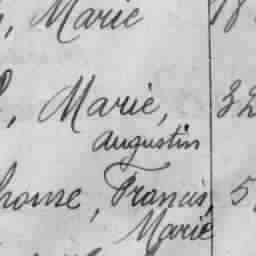 , Marie 18
, Marie, 32
Augustin
honse, Francis, 5
Marie